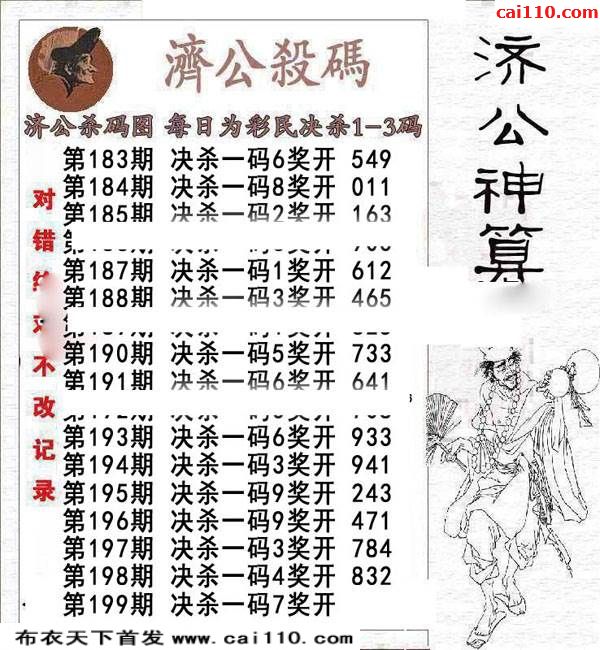 cai110.com
濟公殺碼
济公神算
济公杀码图 每日为彩民决杀1-3码
对错 不改记录
第183期 决杀一码6奖开 549
第184期 决杀一码8奖开 011
第185期 决杀一码2奖开 163
第187期 决杀一码1奖开 612
第188期 决杀一码3奖开 465
第190期 决杀一码5奖开 733
第191期 决杀一码6奖开 641
第193期 决杀一码6奖开 933
第194期 决杀一码3奖开 941
第195期 决杀一码9奖开 243
第196期 决杀一码9奖开 471
第197期 决杀一码3奖开 784
第198期 决杀一码4奖开 832
第199期 决杀一码7奖开
布衣天下首发 www.cai110.com